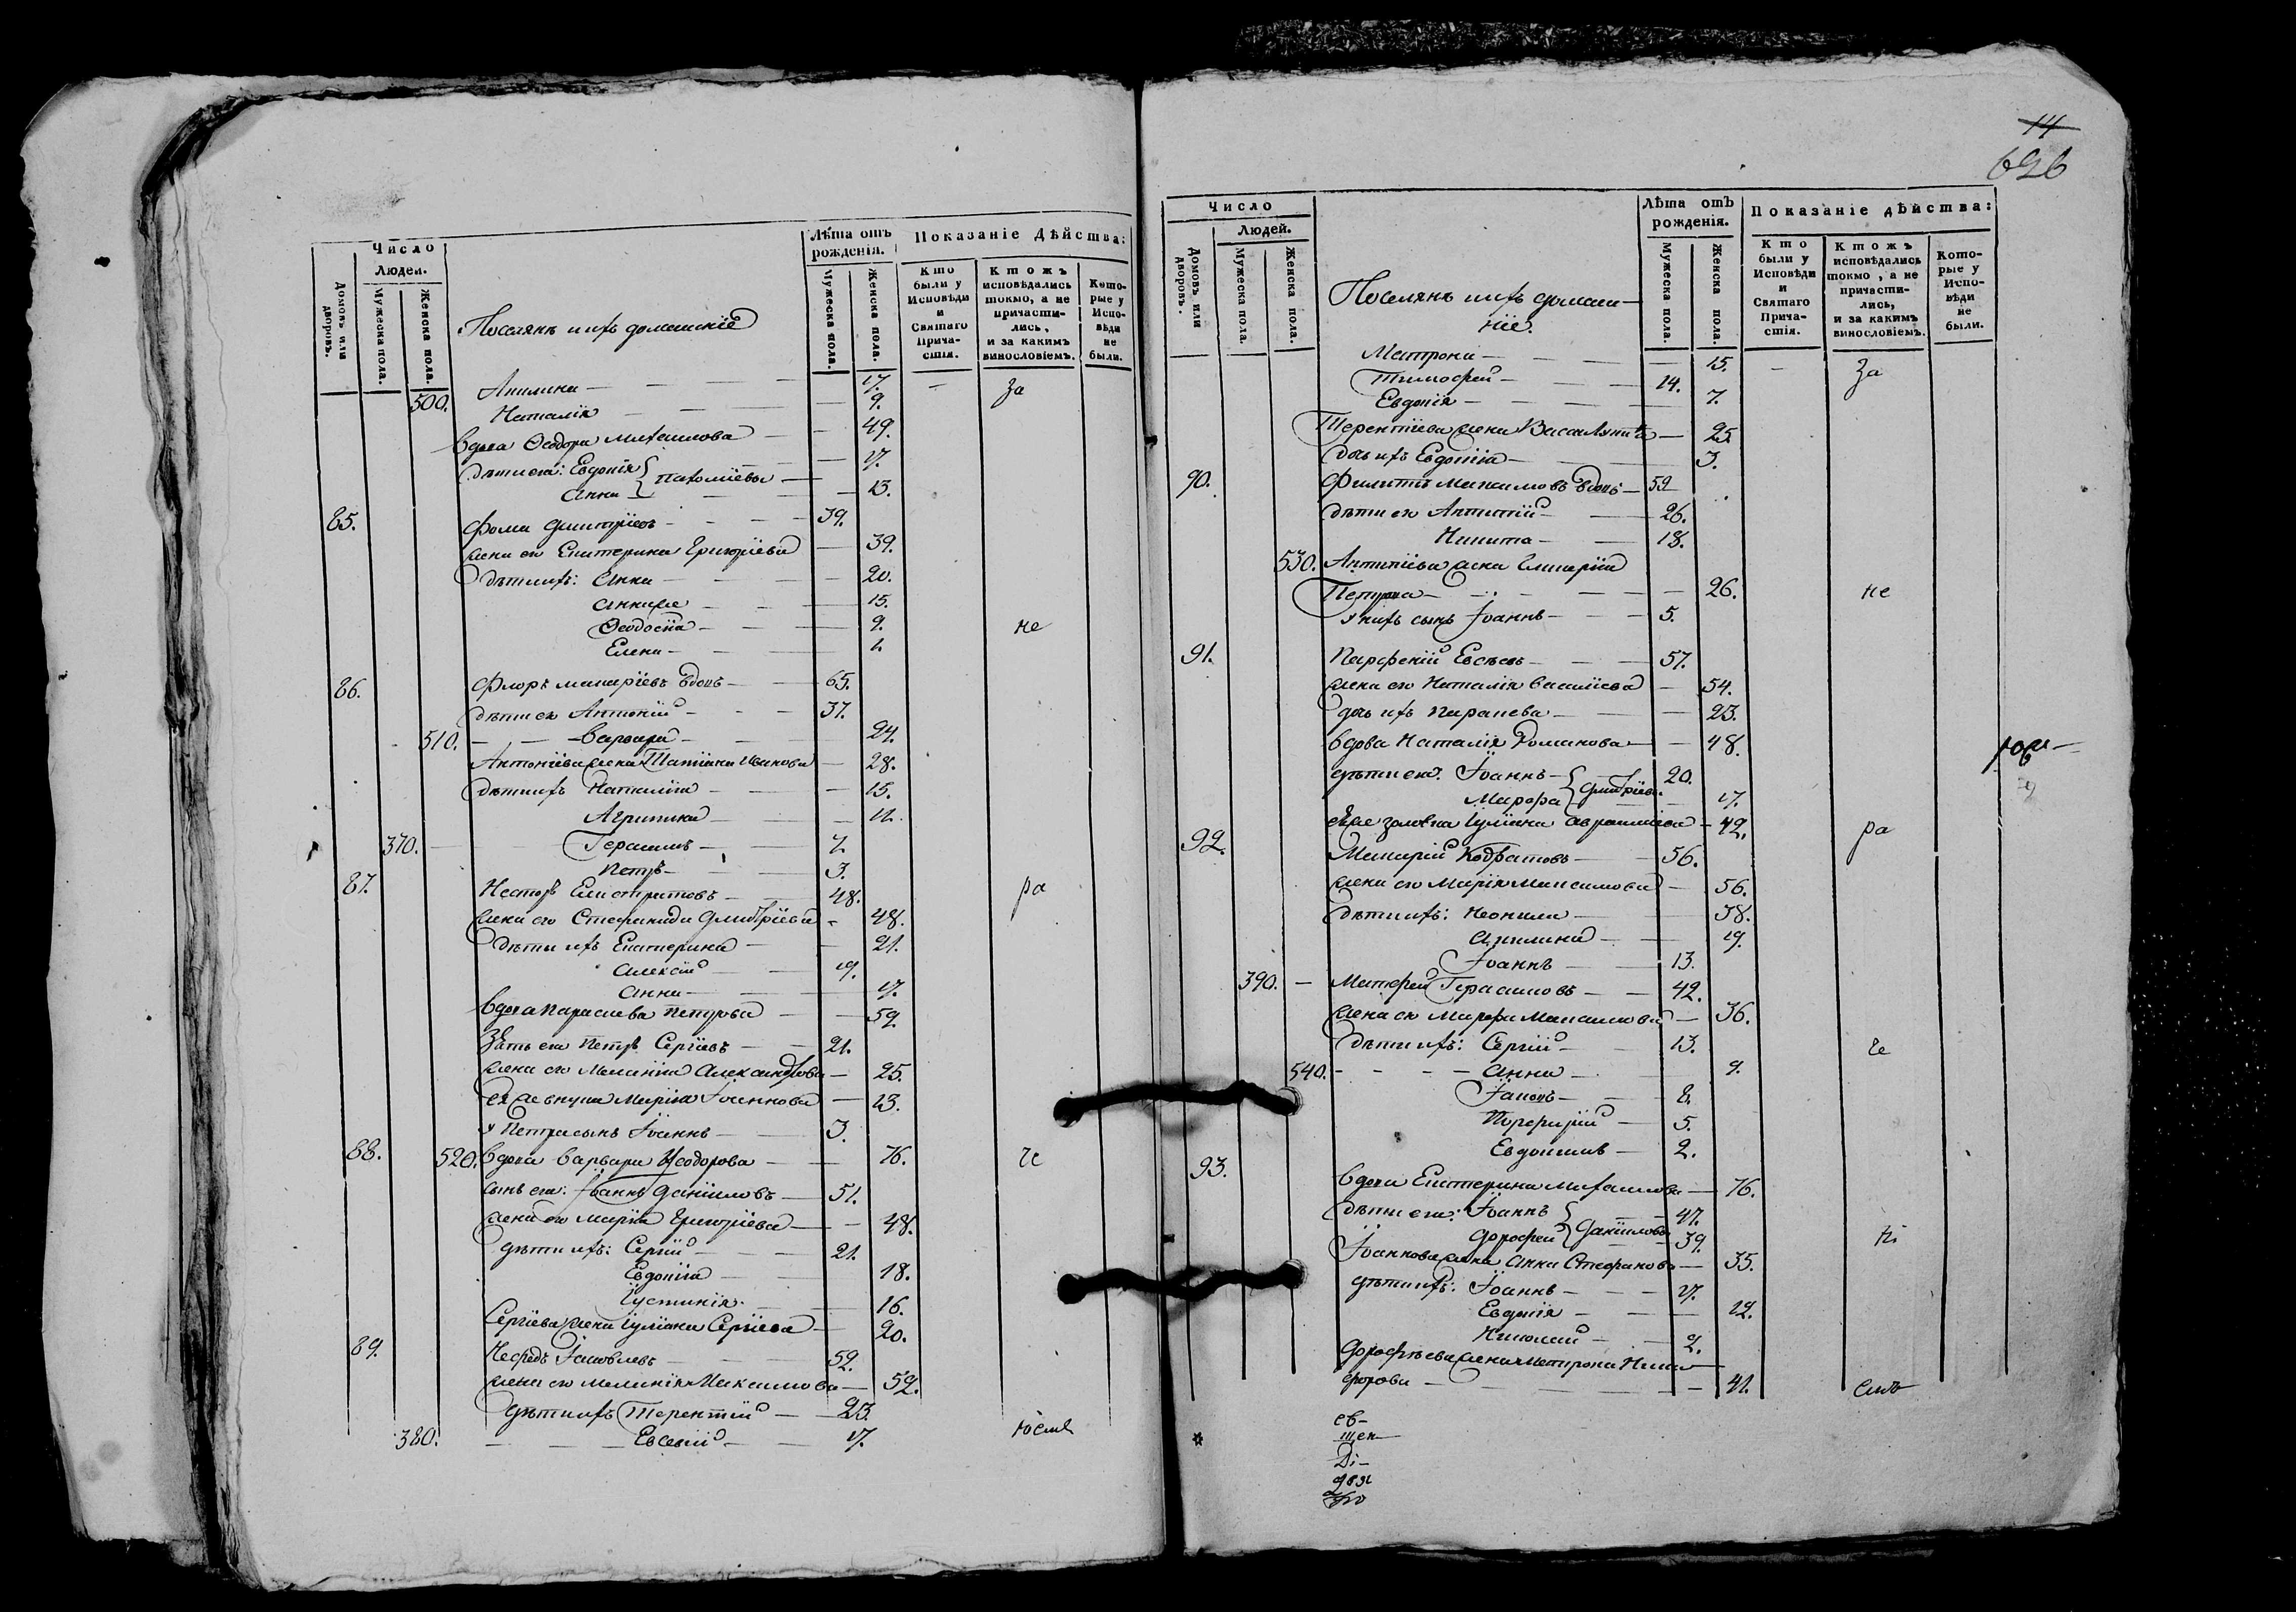 Число
Людей.
Домовъ или дворовъ.
Мужеска пола.
Женска пола.
Поселянъ и ихъ домашнiе
Лѣта отъ рожденiя.
Мужеска пола.
Женска пола.
Показанiе Дѣйства:
Кто были у Исповѣди и Святаго Причастiя.
Ктожъ исповѣдались токмо, а не причастились, и за какимъ винословiемъ.
Которые у Исповѣди не были.
Акилина 17. За
500. Наталiя 9.
вдова Ѳеодора Михаилова 49.
дѣти ея: Евдокiя 17.
Анна } Пахомiевы 13.
85. Фома Дмитрiевъ 39.
жена его Екатерина Григорiева 39.
дѣти ихъ: Анна 20.
Анна же 15.
Ѳеодосiа 9. не
Елена 1.
86. Флоръ Макарiевъ вдовъ 65.
дѣти его Антонiй 37.
510. Варвара 24.
Антонiева жена Татiана Иванова 28.
дѣти ихъ Наталiа 15.
Агрипина 11.
370. Герасимъ 7.
Петръ 3.
87. Несторъ Елистратовъ 48. ра
жена его Стефанида Дмитрiева 48.
дѣти ихъ Екатерина 21.
Алексiй 19.
Анна 17.
вдова Параскева Петрова 59.
Зять ея Петръ Сергiевъ 21.
жена его Меланiа Александрова 25.
ея же внука Марiа Iоаннова 13.
у Петра сынъ Iоаннъ 3.
88. 520. вдова Варвара Ѳеодорова 76. че
сынъ ея: Iоаннъ Данiиловъ 51.
жена его Марiа Григорiева 48.
дѣти ихъ: Сергiй 21.
Евдокiа 18.
Iустинiя 16.
Сергiева жена Iулiана Сергiева 20.
89. Нефедъ Iаковлевъ 52.
жена его Меланiя Максимова 52.
дѣти ихъ Терентiй 23.
380. Евсевiй 17.
14
696
Число
Людей.
Домовъ или дворовъ.
Мужеска пола.
Женска пола.
Поселянъ и ихъ домаш-
нiе.
Лѣта отъ рожденiя.
Мужеска пола.
Женска пола.
Показанiе дѣйства:
Кто были у Исповѣди и Святаго Причастiя.
Ктожъ исповѣдались токмо, а не причастились, и за какимъ винословiемъ.
Которые у Исповѣди не были.
Матрона 15. За
Тимофей 14.
Евдокiя 7.
Терентiева жена 25.
дочь ихъ Евдокiа 3.
90. Филиппъ Максимовъ вдовъ 52
дѣти его Антипiй 26.
Никита 18.
530. Антипiева жена Гликерiа
Петрова 26. не
у нихъ сынъ Iоаннъ 5.
91. Парфенiй Евсѣевъ 57.
жена его Наталiя Васильева 54.
дочь ихъ Параскева 23.
вдова Наталiя Романова 48.
дѣти ея: Iоаннъ 20.
Марфа } Дмитрiевы 17.
ея же золовка Iулiана Авраамiева 42. ра
92. Макарiй Кодратовъ 56.
жена его Марiя Максимова 56.
дѣти ихъ: Неонила 38.
Акилина 19.
Iоаннъ 13.
390. Матфей Герасимовъ 42.
жена его Марфа Максимова 36.
дѣти ихъ: Сергiй 13. че
540. Анна 9.
Iаковъ 8.
Порфирiй 5.
Евдокимъ 2.
93. вдова Екатерина Михаилова 76.
дѣти ея: Iоаннъ 47.
Дорофей } Данiиловы 39.
Iоаннова жена Анна Стефанова 35.
дѣти ихъ: Iоаннъ 17.
Евдокiя 12.
Николай 2.
Дорофѣева жена Матрона Ники-
форова 41.
св-
щен
Дi-